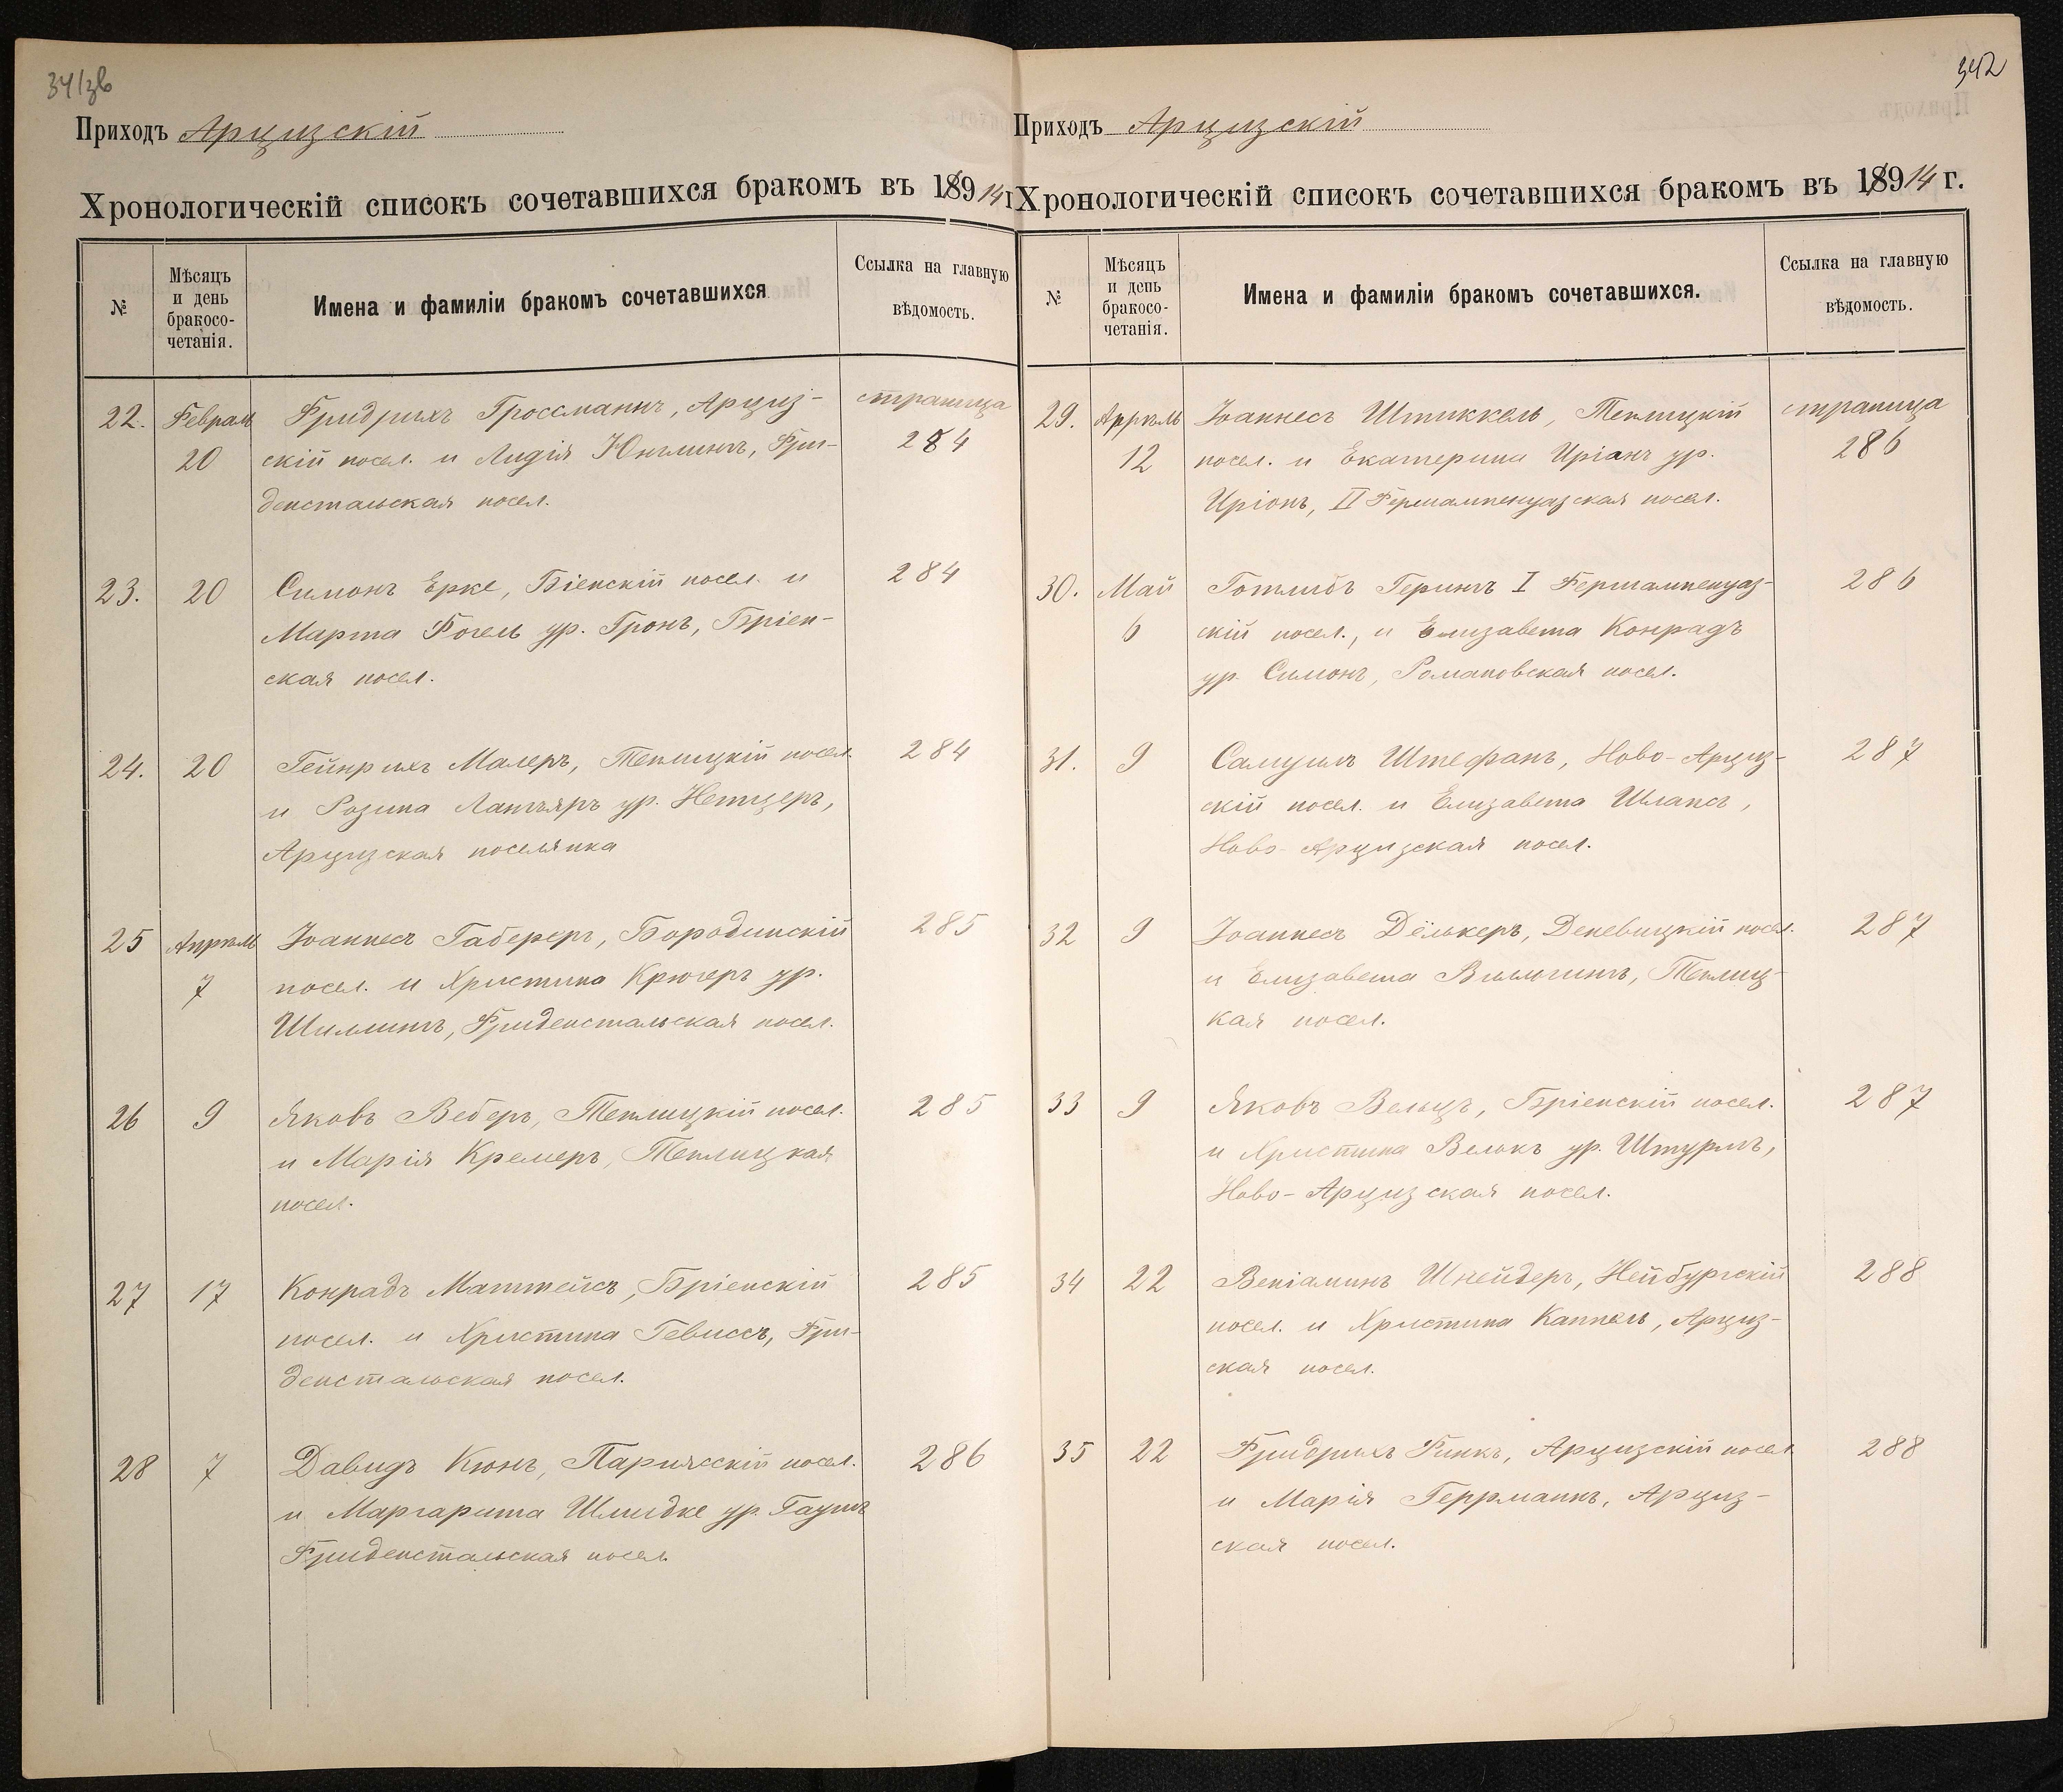 341зв
Приходъ Арцизскій
Хронологическій списокъ сочетавшихся бракомъ въ 18914 г
№
Мѣсяцъ
и день
бракосо-
четанія.
Имена и фамиліи бракомъ сочетавшихся
Ссылка на главную
вѣдомость.
22. Февраль Фридрихъ Гроссманнъ, Арциз- страница
20 скій посел. и Лидія Юнлингъ, Фри- 284
денстальская посел.
23. 20 Симонъ Ерке, Бріенскій посел. и 284
Марта Фогель ур. Гронъ, Бріен-
ская посел.
24. 20 Гейнрихъ Малеръ, Теплицкій посел. 284
и Розина ур. Нетцеръ,
Арцизская поселянка
25 Апрѣль Іоаннесъ Габереръ, Бородинскій 285
7 посел. и Христина Крюгеръ ур.
Шиллингъ, Фриденстальская посел.
26 9 Яковъ Веберъ, Теплицкій посел. 285
и Марія Кремеръ, Теплицкая
посел.
27 17 Конрадъ Маттейсъ, Бріенскій 285
посел. и Христина Гевиссъ, Фри-
денстальская посел.
28 7 Давидъ Кюнъ, Парижскій посел. 286
и Маргарита Шмидке ур.
Фриденстальская посел.
342
Приходъ Арцизскій
Хронологическій списокъ сочетавшихся бракомъ въ 18914 г.
№
Мѣсяцъ
и день
бракосо-
четанія.
Имена и фамиліи бракомъ сочетавшихся.
Ссылка на главную
вѣдомость.
29. Апрѣль Іоаннесъ Штиккель, Теплицкій страница
12 посел. и Екатерина Иріонъ ур. 286
Иріонъ, II Фершампенуазская посел.
30. Май Готлибъ Герингъ I Фершампенуаз- 286
6 скій посел., и Елизавета Конрадъ
ур. Симонъ, Романовская посел.
31. 9 Самуилъ Штефанъ, Ново-Арциз- 287
скій посел. и Елизавета Шлапсъ,
Ново-Арцизская посел.
32 9 Іоаннесъ Дёлькеръ, Деневицкій посел. 287
и Елизавета Теплиц-
кая посел.
33 9 Яковъ Вельцъ, Бріенскій посел. 287
и Христина Велькъ ур. Штурмъ,
Ново-Арцизская посел.
34 22 Веніаминъ Шнейдеръ, Нейбургскій 288
посел. и Христина Каппель, Арциз-
ская посел.
35 22 Фридрихъ Финкъ, Арцизскій посел 288
и Марія Геррманнъ, Арциз-
ская посел.